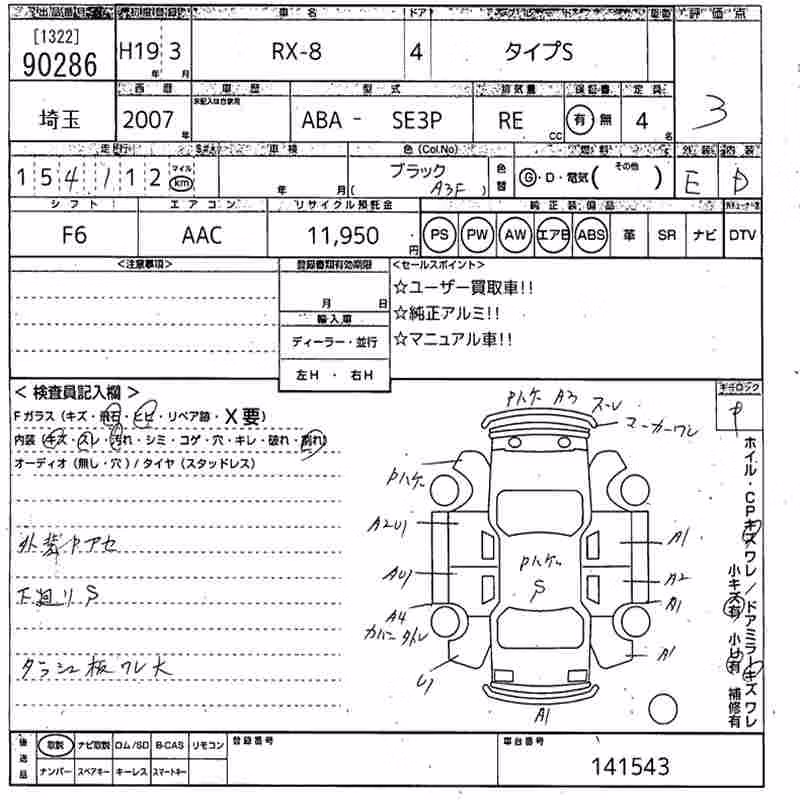 [1322]
90286
車 名
ドア
評 価 点
H19 年 3 月
RX-8
4
タイプS
3
埼玉
西 暦
車 歴
型 式
排気量
保証書
定 員
未記入は自家用
2007 年
ABA - SE3P
RE CC
有 無
4 名
走 行
車 検
色 (Col.No)
燃 料
外 装
内 装
154,112 マイル km
年 月
ブラック
( A3F )
色替
G・D・電気( その他 )
E
D
シ フ ト
エ ア コ ン
リサイクル預託金
純 正 装 備 品
F6
AAC
11,950 円
PS
PW
AW
エアB
ABS
革
SR
ナビ
DTV
<注意事項>
登録書類有効期限
月 日
輸 入 車
ディーラー・並行
左H ・ 右H
<セールスポイント>
☆ユーザー買取車!!
☆純正アルミ!!
☆マニュアル車!!
< 検査員記入欄 >
Fガラス (キズ・飛石・ヒビ・リペア跡・X要)
内装 (キズ・スレ・汚れ・シミ・コゲ・穴・キレ・破れ・割れ)
オーディオ (無し・穴) / タイヤ (スタッドレス)
外装Pアセ
下廻りS
ダッシュ板ワレ大
Pハゲ A3 スレ
マーカーワレ
Pハゲ
A2U1
A1
Pハゲ
S
AU1
A2
A4
A1
U1
A1
A1
ホイル・CPキズ ワレ / ドアミラーキズ ワレ
小キズ有 小U有 補修有
後送品
取説
ナビ取説
ロム/SD
B-CAS
リモコン
ナンバー
スペアキー
キーレス
スマートキー
登録番号
車台番号
141543